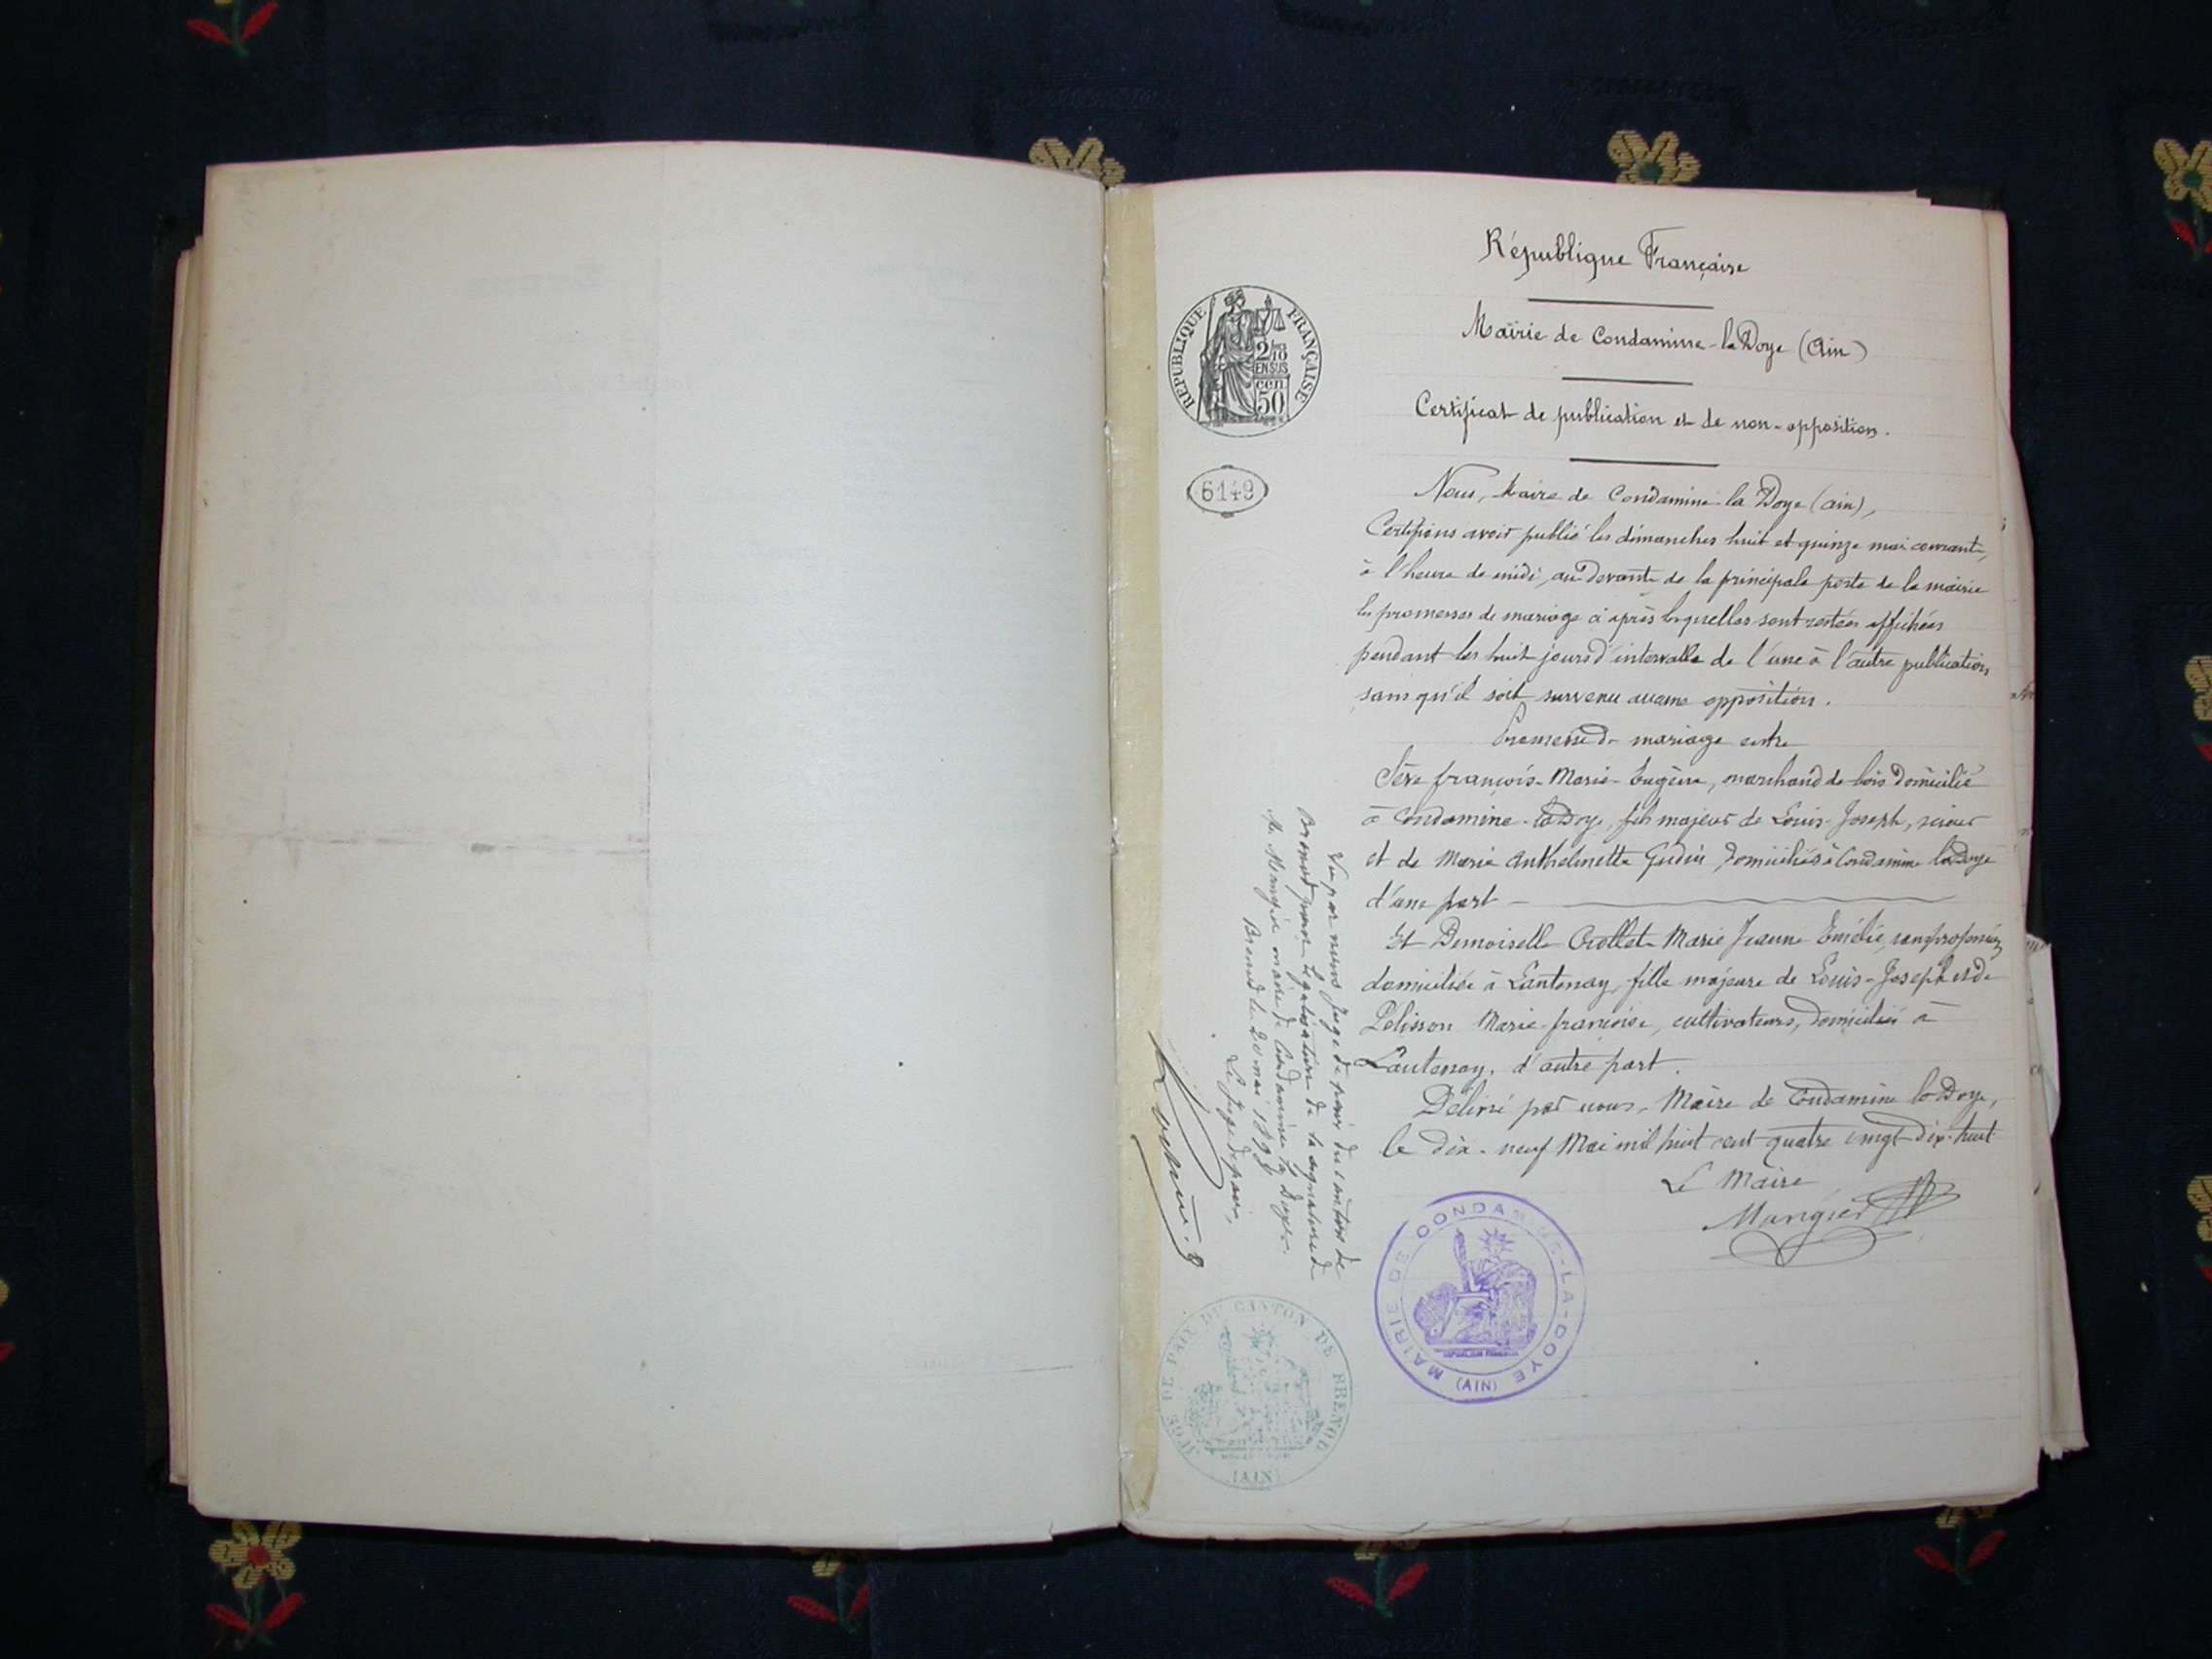 République Française
Mairie de Condamine-la Doye (Ain)
Certificat de publication et de non-opposition.
RÉPUBLIQUE FRANÇAISE
2/10
EN SUS
cen
50
6149
Nous, Maire de Condamine-la Doye (ain),
Certifions avoir publié les dimanches huit et quinze mai courant,
à l'heure de midi, au devant de la principale porte de la mairie
les promesses de mariage ci après lesquelles sont restées affichées
pendant les huit jours d'intervalle de l'une à l'autre publication
sans qu'il soit survenu aucune opposition.
Promesse de mariage entre
François-Marie-Eugène, marchand de bois domicilié
à Condamine-la Doye, fils majeur de Louis-Joseph, scieur
et de Marie Anthelmette domiciliés à Condamine la Doye
d'une part
Et Demoiselle Crollet Marie Jeanne Emélie, sans profession,
domiciliée à Lantenay, fille majeure de Louis-Joseph et de
Pelisson Marie-françoise, cultivateurs, domiciliés à
Lantenay, d'autre part.
Délivré par nous, Maire de Condamine la Doye,
le dix-neuf Mai mil huit cent quatre vingt dix-huit
Le Maire
Mangier
Vu par nous Juge de paix du canton de
Brenod pour légalisation de la signature de
Mr Mangier maire de Condamine la Doye.
Brenod le 20 mai 1898
Le Juge de paix,
MAIRIE DE CONDAMINE-LA-DOYE
(AIN)
JUGE DE PAIX DU CANTON DE BRENOD
(AIN)